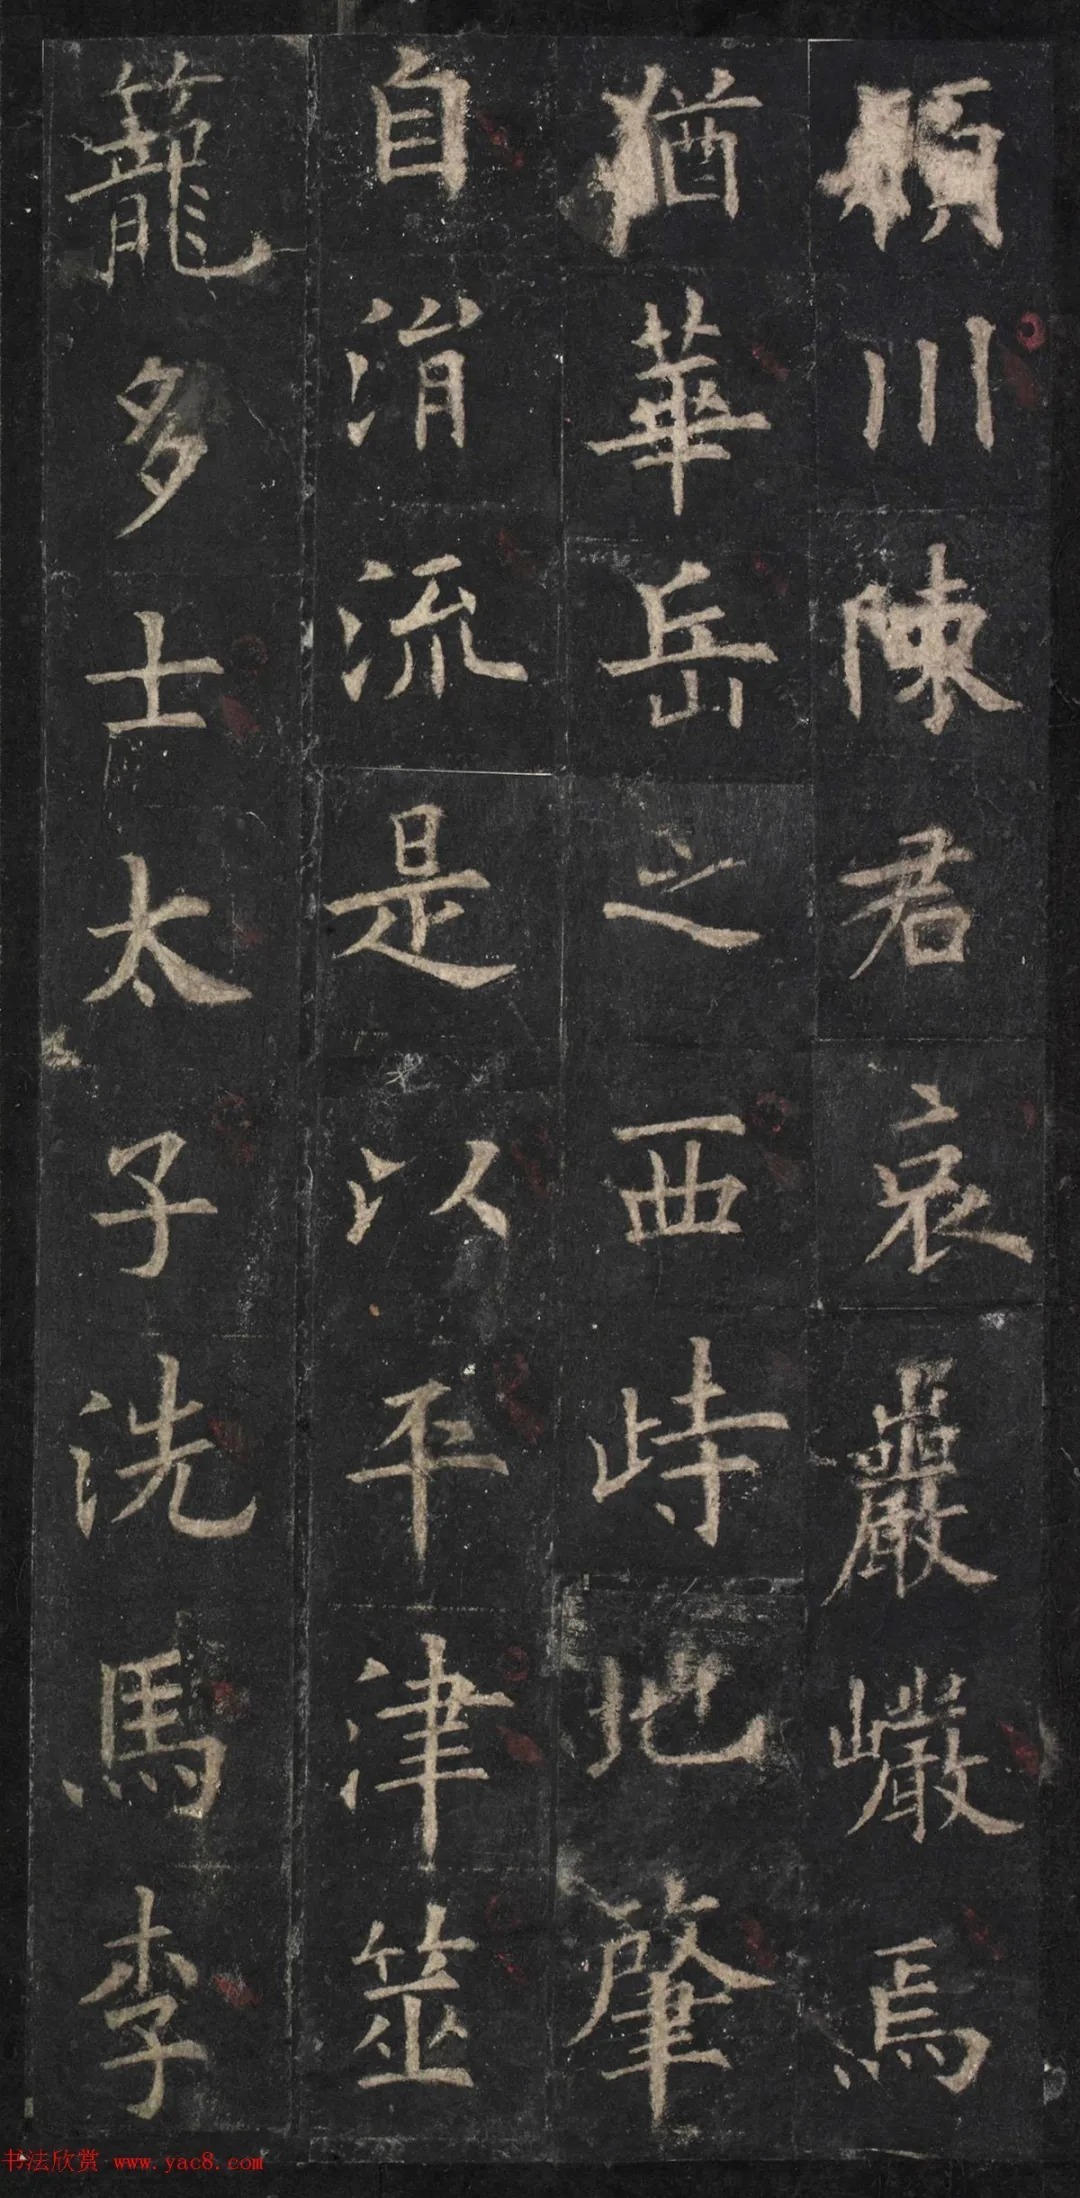 潁川陳君哀巖巖焉
猶華岳之西峙地肇
自涓流是以平津筮
蘢多士太子洗馬李
书法欣赏 www.yac8.com